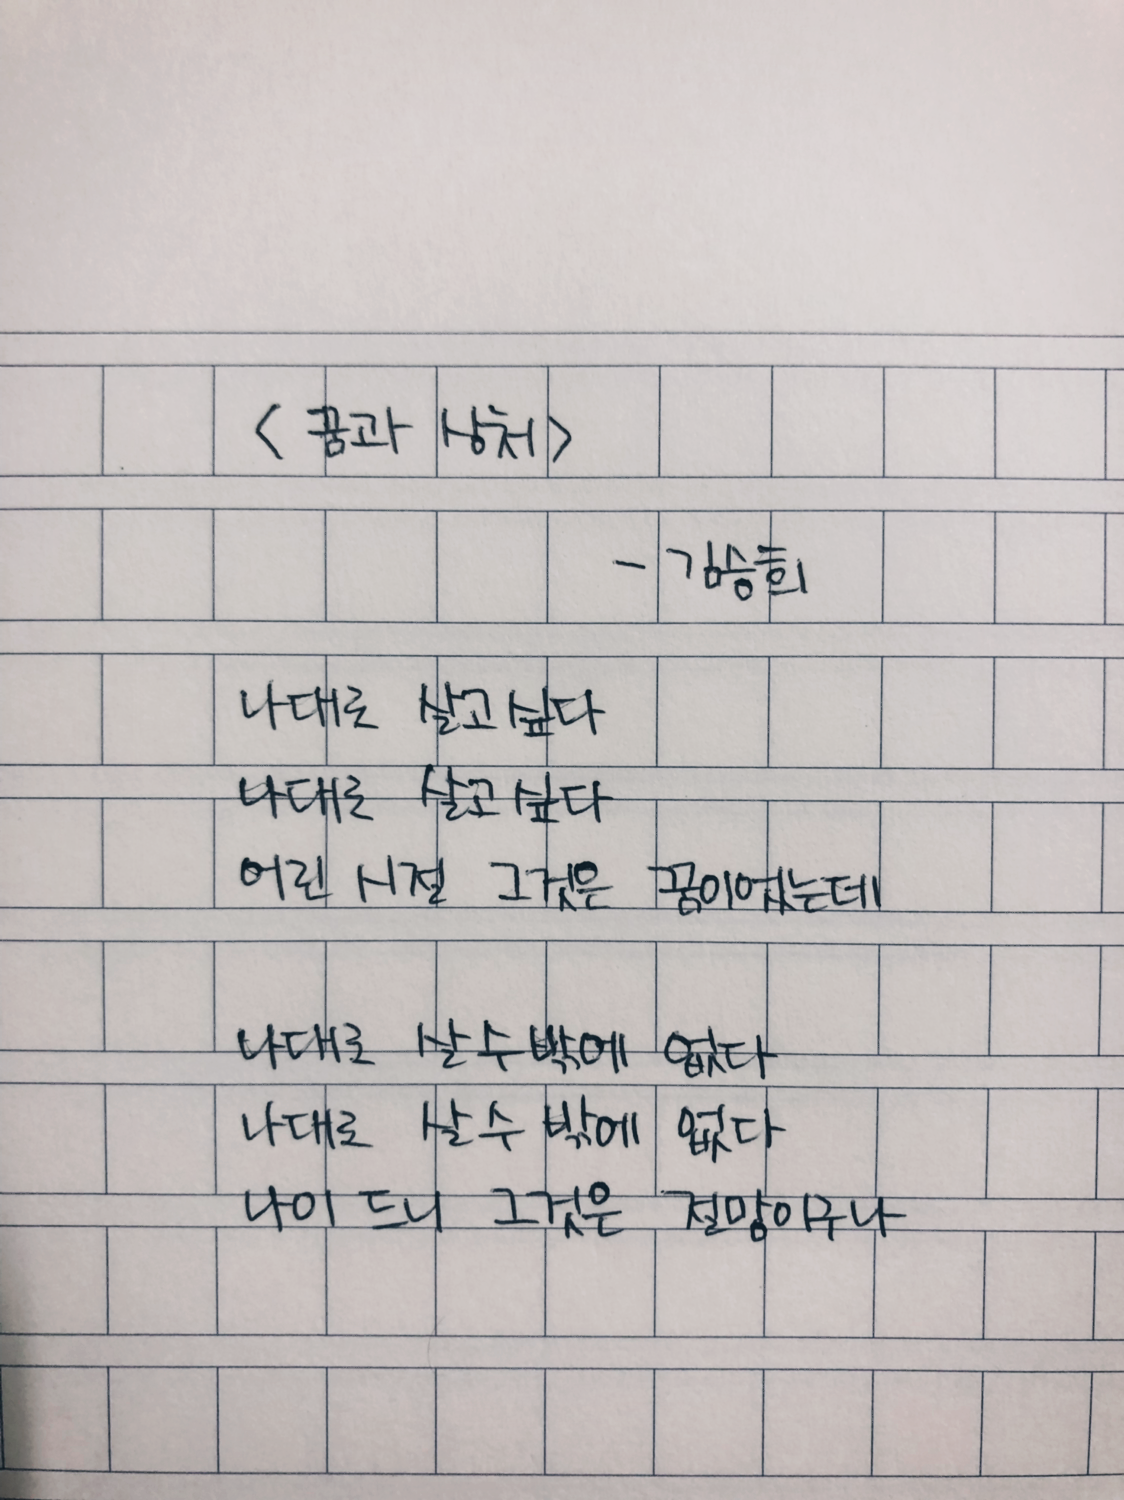 <꿈과 상처>
- 김승희
나대로 살고싶다
나대로 살고싶다
어린 시절 그것은 꿈이었는데
나대로 살 수밖에 없다
나대로 살 수 밖에 없다
나이 드니 그것은 절망이구나